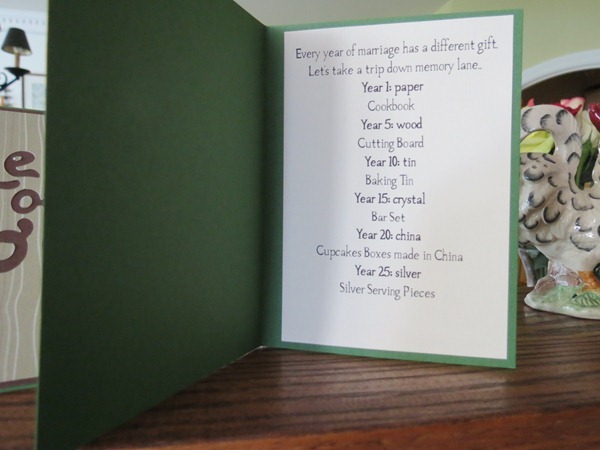 Every year of marriage has a different gift.
Let's take a trip down memory lane...
Year 1: paper
Cookbook
Year 5: wood
Cutting Board
Year 10: tin
Baking Tin
Year 15: crystal
Bar Set
Year 20: china
Cupcakes Boxes made in China
Year 25: silver
Silver Serving Pieces